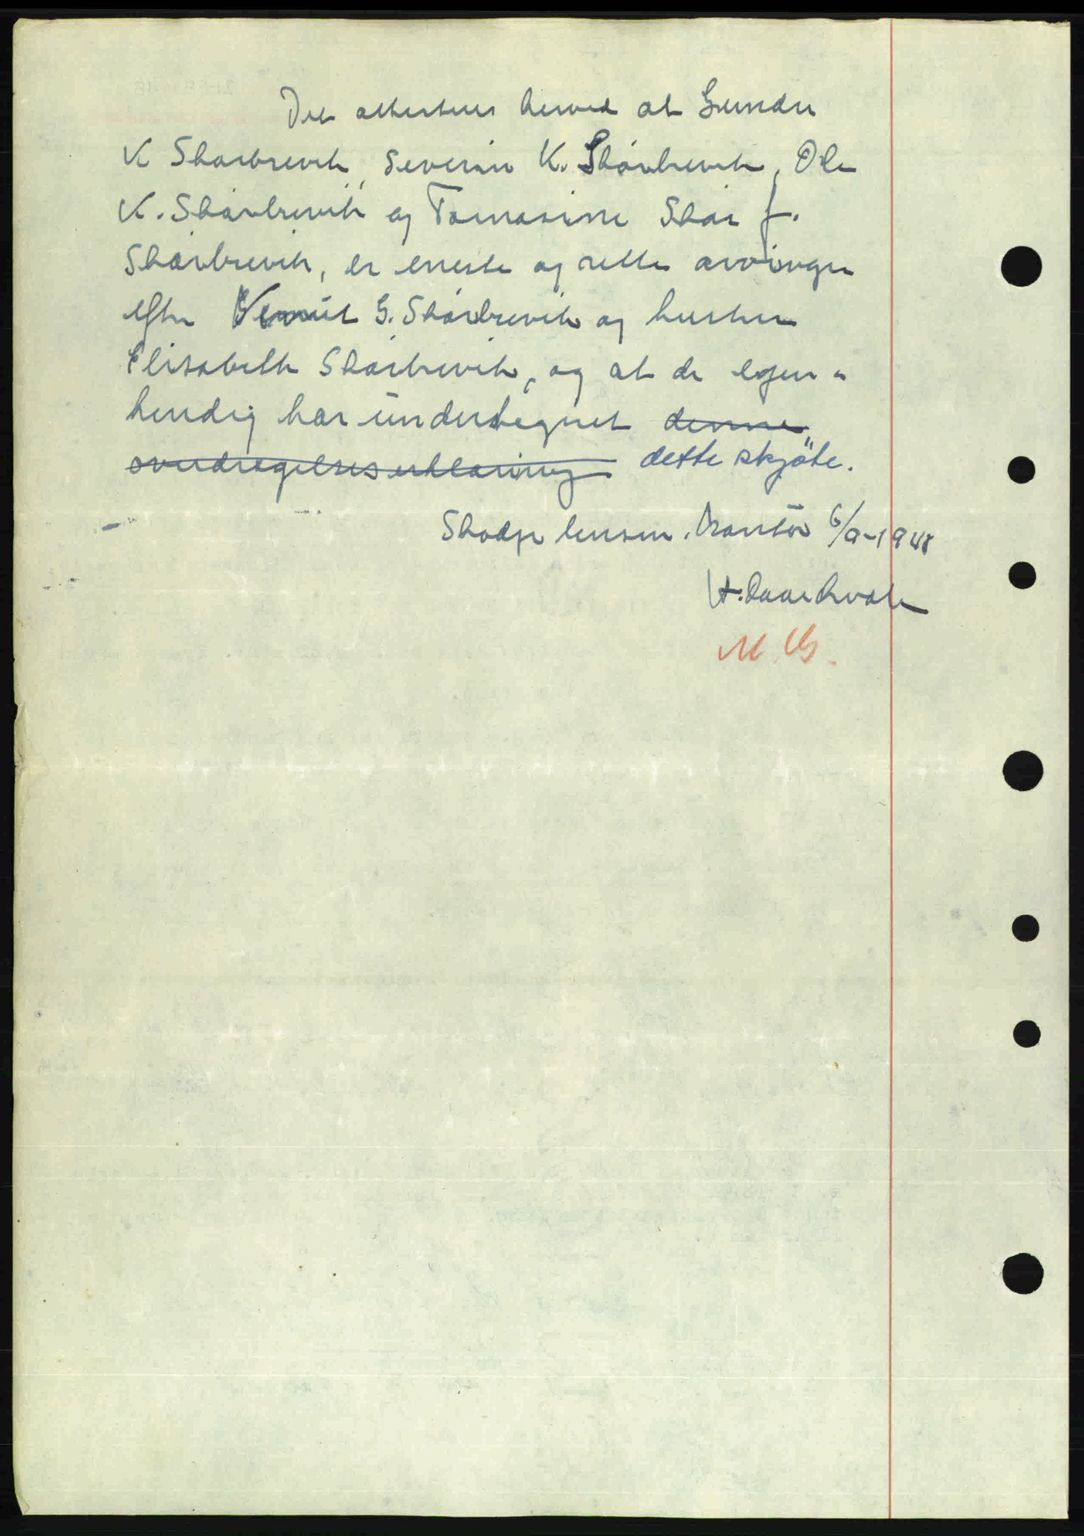 Det attesteres herved at Gunder
K Skarbrevik, Severin K. Skarbrevik, Ole
K. Skarbrevik og Tomasine Skar f.
Skarbrevik, er eneste og rette arvinger
efter G. Skarbrevik og hustru
Elisabeth Skarbrevik, og at de egen-
hendig har undertegnet denne
overdragelseserklæring dette skjöte.
kontor 6/9-1948
M. G.